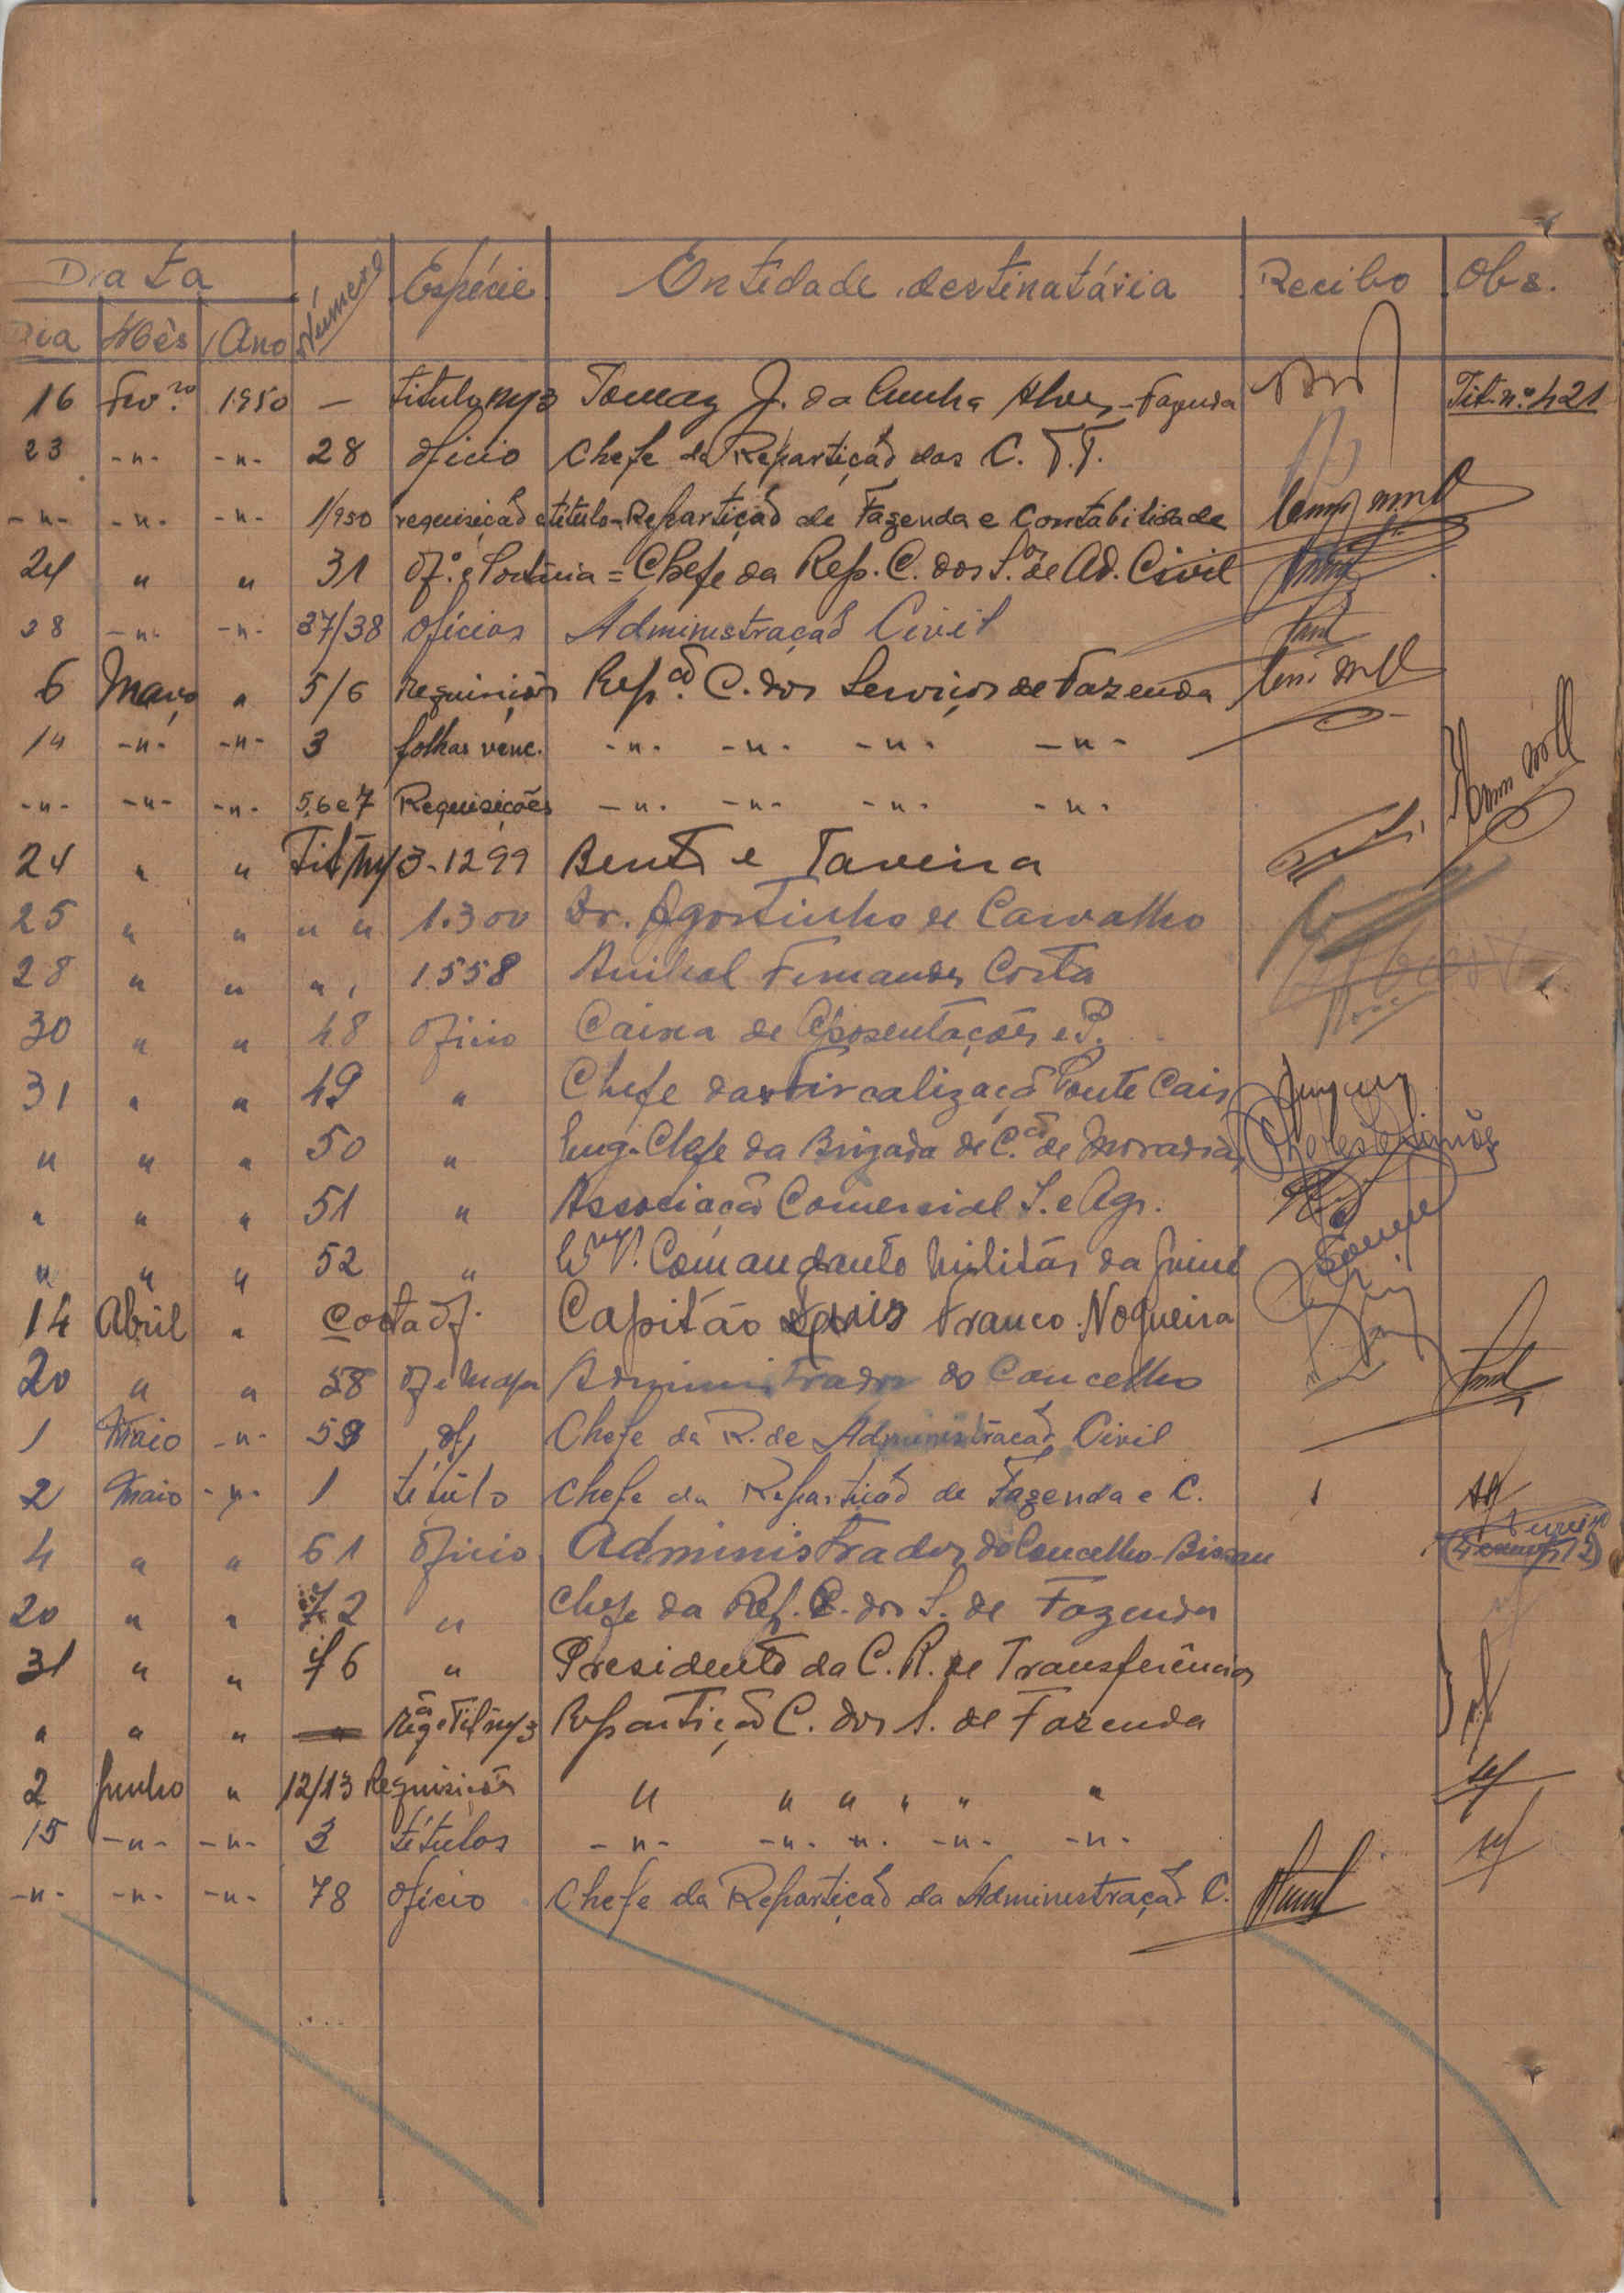 Data Número Espécie Entidade destinatária Recibo Obs.
Dia Mês Ano
16 Fev.ro 1950 — titulo m/3 Tomaz J. da Cunha Alves - Fazenda Tit. nº 421
23 -"- -"- 28 ofício Chefe da Repartição dos C.T.T.
-"- -"- -"- 1/950 requisição e título - Repartição de Fazenda e Contabilidade
24 " " 31 of.º e Portaria = Chefe da Rep. C. dos S.os de Ad. Civil
28 -"- -"- 37/38 Ofícios Administração Civil
6 Março " 5/6 Requisições Rep.ção C. dos Serviços de Fazenda
14 -"- -"- 3 folhas venc. -"- -"- -"- -"-
-"- -"- -"- 5,6 e 7 Requisições -"- -"- -"- -"-
24 " " Tit m/3 - 1299 Bento e Taveira
25 " " " " 1.300 Dr. Agostinho de Carvalho
28 " " " " 1558 Anibal Fernandes Costa
30 " " 48 Ofício Caixa de Aposentações e P.
31 " " 49 " Chefe da Fiscalização Ponte Cais
" " " 50 " Eng. Chefe da Brigada de C.ão de Moradias
" " " 51 " Associação Comercial I. e Agr.
" " " 52 " Comandante Militar da Guiné
14 Abril " Costa Of. Capitão Luis Franco Nogueira
20 " " 58 Of e Mapa Administrador do Concelho
1 Maio -"- 59 of, Chefe da R. de Administração Civil
2 Maio -"- 1 título Chefe da Repartição de Fazenda e C.
4 " " 61 Ofício Administrador do Concelho - Bissau
20 " " 72 " Chefe da Rep. C. dos S. de Fazenda
31 " " 76 " Presidente da C. R. de Transferências
" " " Rq.ão e Tit m/3 Repartição C. dos S. de Fazenda
2 Junho " 12/13 Requisições " " " " " "
15 -"- -"- 3 títulos -"- -"- -"- -"- -"-
-"- -"- -"- 78 Ofício Chefe da Repartição da Administração C.